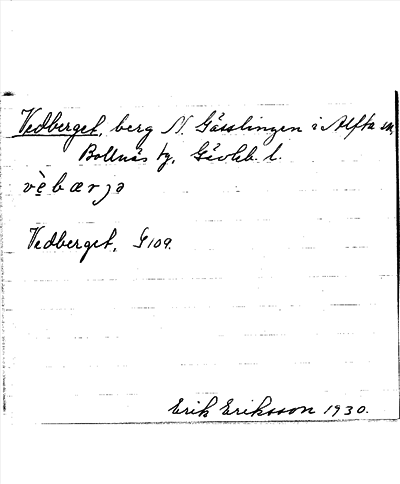 Vedberget, berg N. Gässlingen i Alfta sn,
Bollnäs tg, Gävleb. l.
vèbærjə
Vedberget, G 109.
Erik Eriksson 1930.